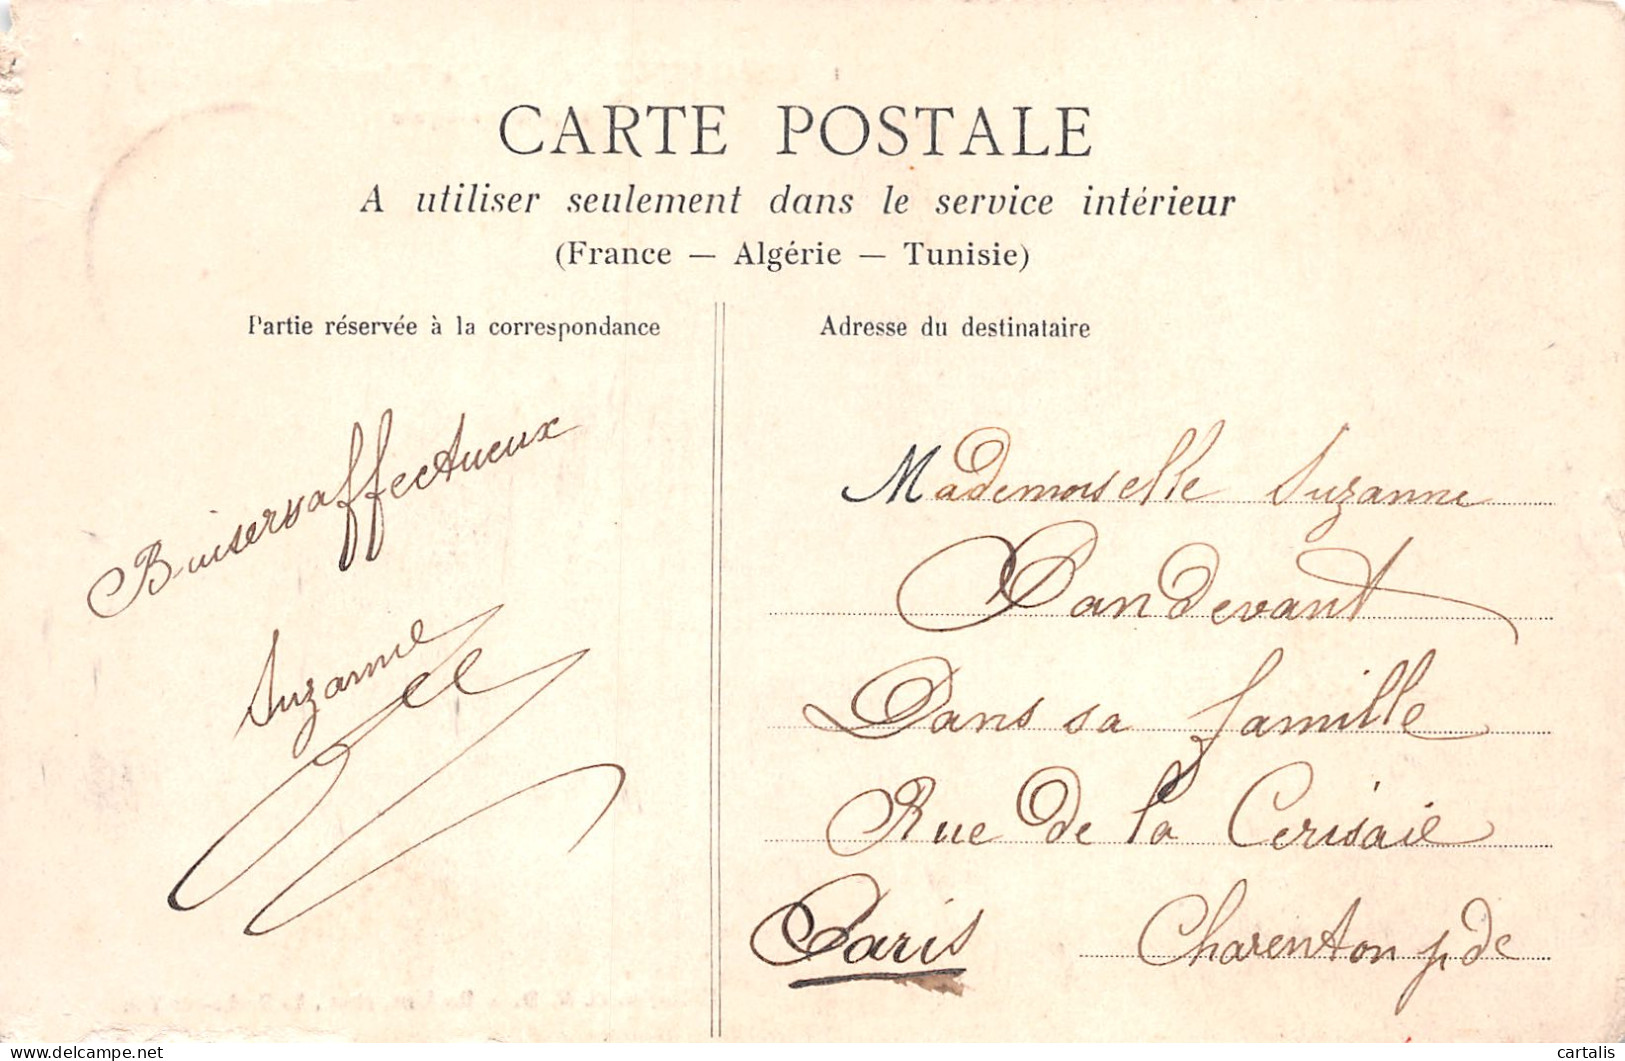 CARTE POSTALE
A utiliser seulement dans le service intérieur
(France — Algérie — Tunisie)
Partie réservée à la correspondance
Baisers affectueux
Suzanne
Adresse du destinataire
Mademoiselle Suzanne
Dandevant
Dans sa famille
Rue de la Cerisaie
Charenton p. de
Paris
cartalis